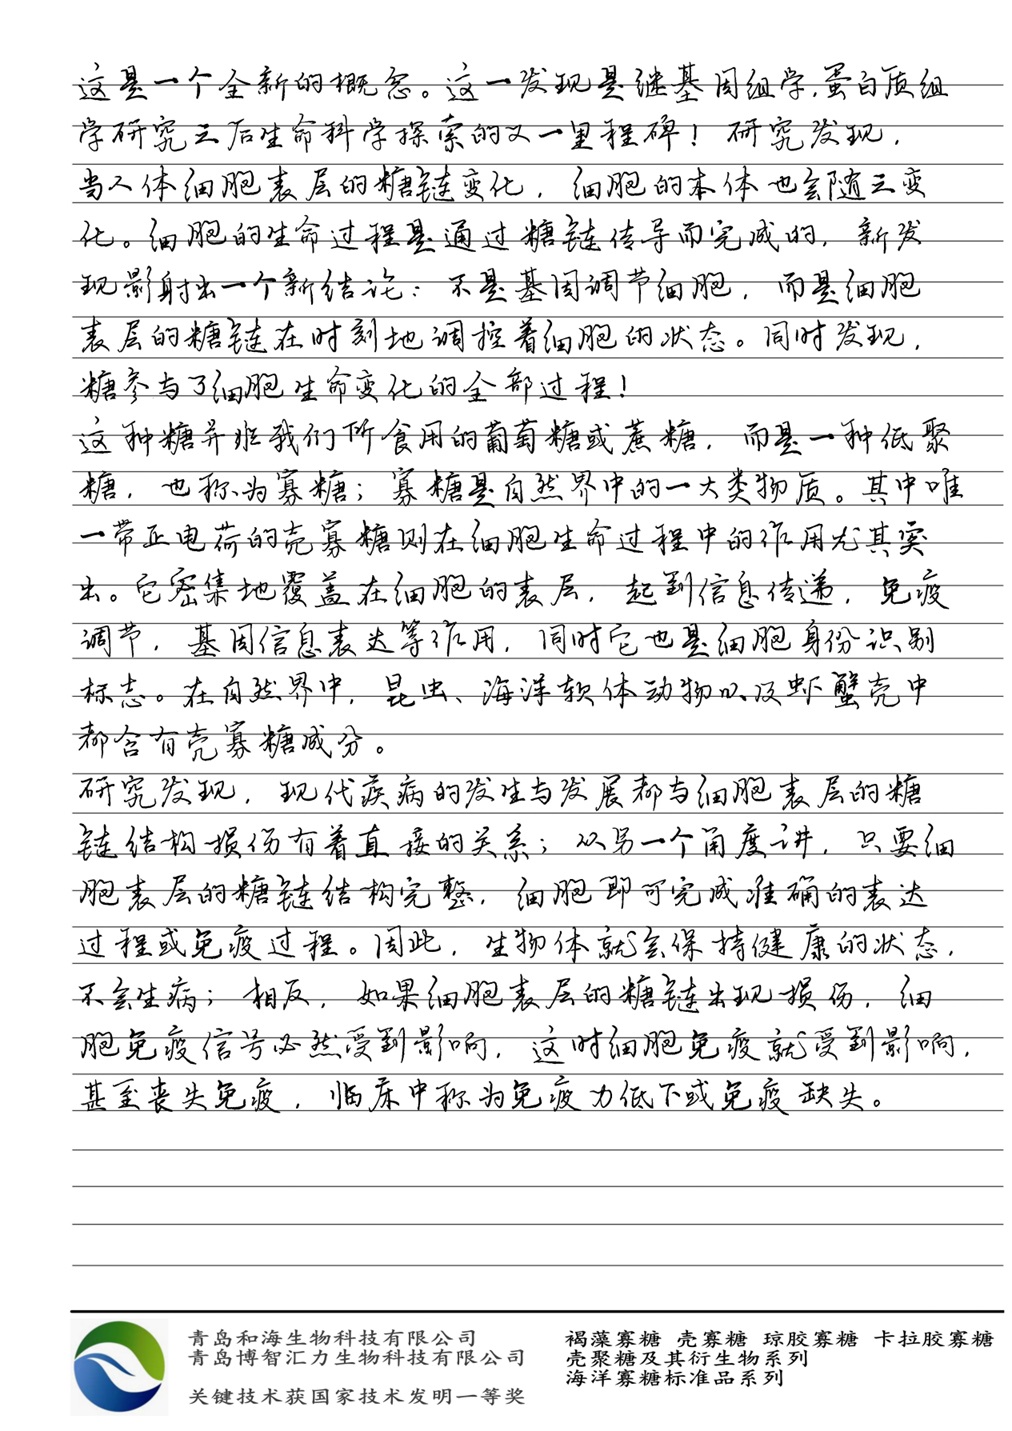 这是一个全新的概念。这一发现是继基因组学,蛋白质组
学研究之后生命科学探索的又一里程碑！研究发现,
当人体细胞表层的糖链变化,细胞的本体也会随之变
化。细胞的生命过程是通过糖链传导而完成的,新发
现影射出一个新结论：不是基因调节细胞,而是细胞
表层的糖链在时刻地调控着细胞的状态。同时发现,
糖参与了细胞生命变化的全部过程！
这种糖并非我们所食用的葡萄糖或蔗糖,而是一种低聚
糖,也称为寡糖；寡糖是自然界中的一大类物质。其中唯
一带正电荷的壳寡糖则在细胞生命过程中的作用尤其突
出。它密集地覆盖在细胞的表层,起到信息传递,免疫
调节,基因信息表达等作用,同时它也是细胞身份识别
标志。在自然界中,昆虫、海洋软体动物以及虾蟹壳中
都含有壳寡糖成分。
研究发现,现代疾病的发生与发展都与细胞表层的糖
链结构损伤有着直接的关系；从另一个角度讲,只要细
胞表层的糖链结构完整,细胞即可完成准确的表达
过程或免疫过程。因此,生物体就会保持健康的状态,
不会生病；相反,如果细胞表层的糖链出现损伤,细
胞免疫信号必然受到影响,这时细胞免疫就受到影响,
甚至丧失免疫,临床中称为免疫力低下或免疫缺失。
青岛和海生物科技有限公司
青岛博智汇力生物科技有限公司
关键技术获国家技术发明一等奖
褐藻寡糖 壳寡糖 琼胶寡糖 卡拉胶寡糖
壳聚糖及其衍生物系列
海洋寡糖标准品系列